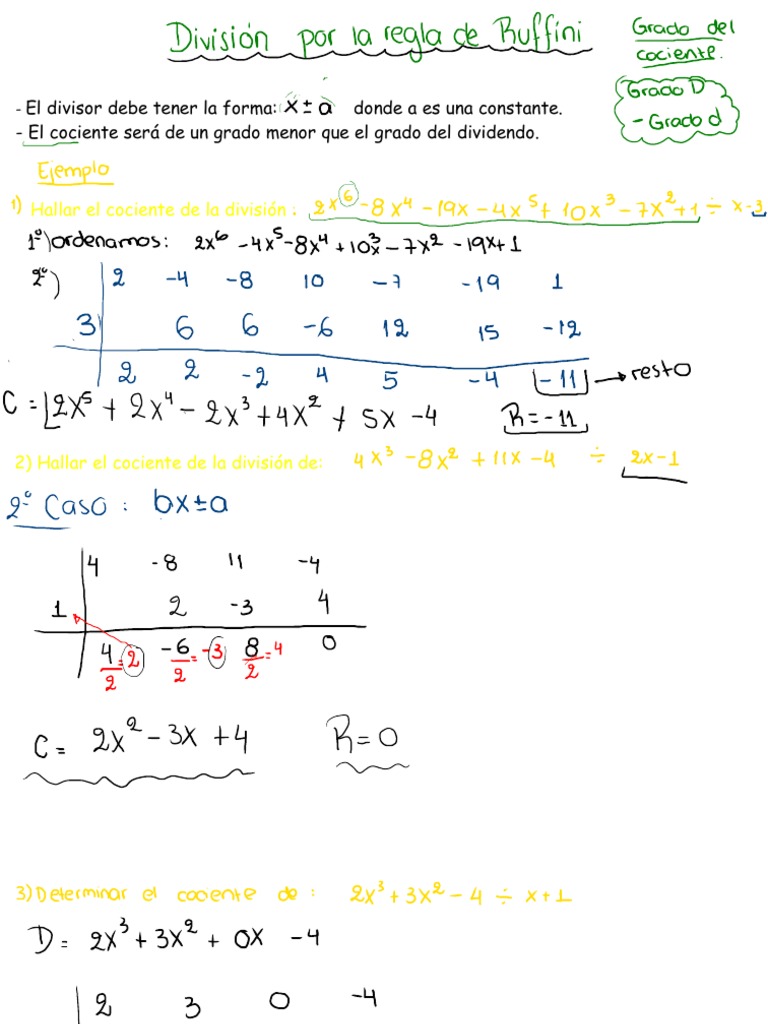 División por la regla de Ruffini
Grado del
cociente.
Grado D
- Grado d
- El divisor debe tener la forma: x ± a donde a es una constante.
- El cociente será de un grado menor que el grado del dividendo.
Ejemplo
1) Hallar el cociente de la división : 2x⁶ - 8x⁴ - 19x - 4x⁵ + 10x³ - 7x² + 1 ÷ x-3
1º) ordenamos: 2x⁶ - 4x⁵ - 8x⁴ + 10x³ - 7x² - 19x + 1
2º) 2 -4 -8 10 -7 -19 1
3 6 6 -6 12 15 -12
2 2 -2 4 5 -4 -11 → resto
C = 2x⁵ + 2x⁴ - 2x³ + 4x² + 5x - 4 R = -11
2) Hallar el cociente de la división de: 4x³ - 8x² + 11x - 4 ÷ 2x-1
2º Caso : bx±a
4 -8 11 -4
1 2 -3 4
4/2 = 2 -6/2 = -3 8/2 = 4 0
C = 2x² - 3x + 4 R = 0
3) Determinar el cociente de : 2x³ + 3x² - 4 ÷ x + 1
D = 2x³ + 3x² + 0x - 4
2 3 0 -4